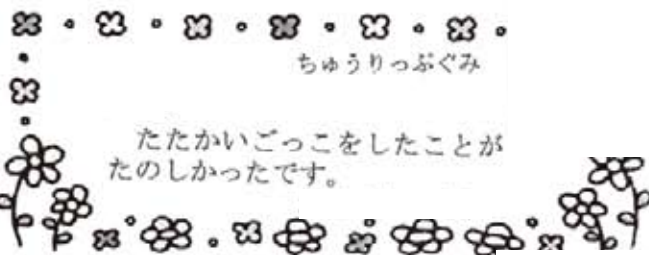 ちゅうりっぷぐみ
たたかいごっこをしたことが
たのしかったです。